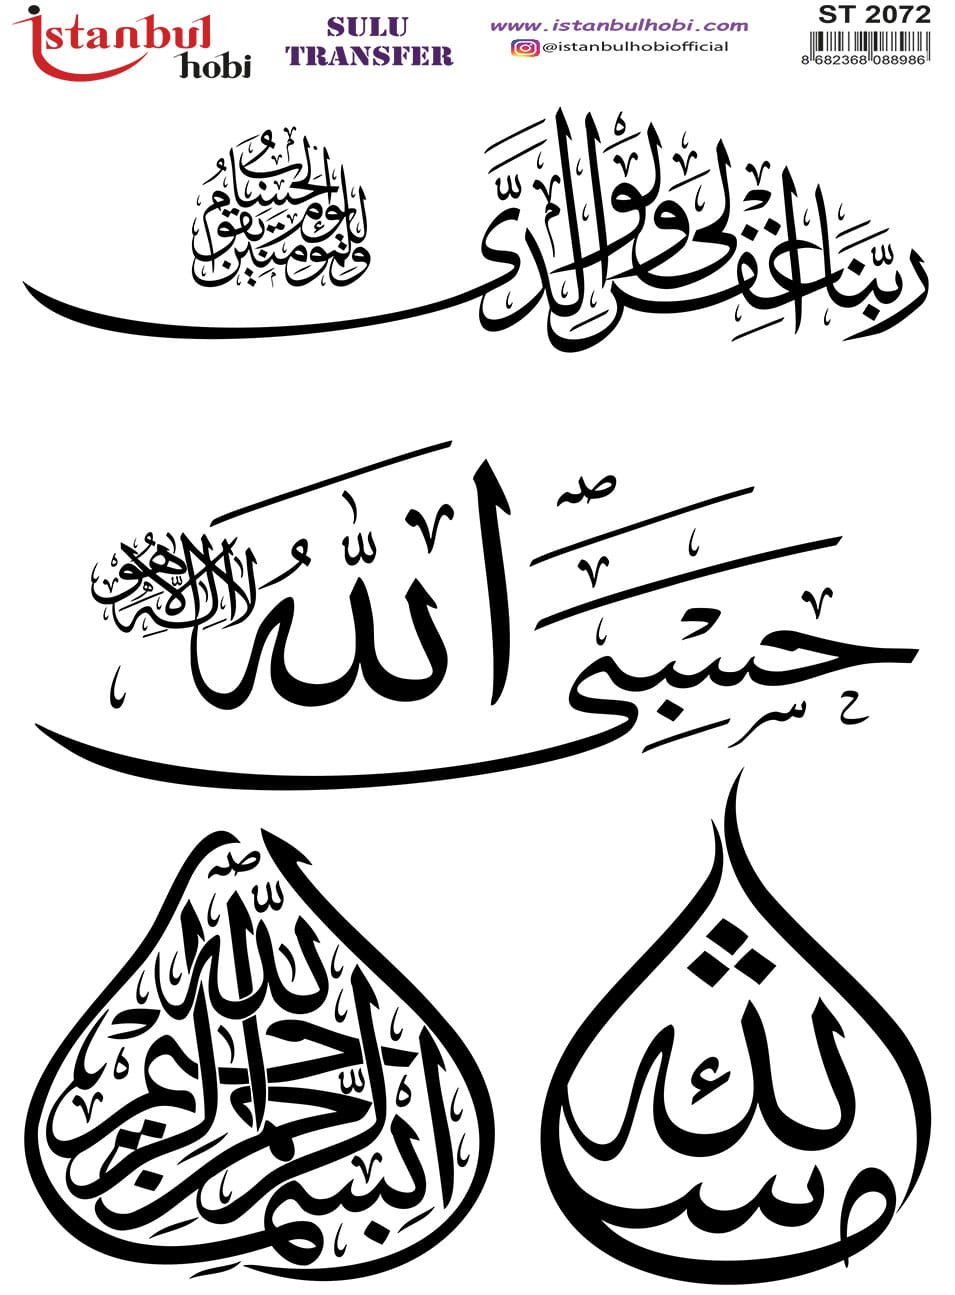 istanbul hobi
SULU TRANSFER
www.istanbulhobi.com
@istanbulhobiofficial
ST 2072
8 682368 088986
ربنا اغفر لى ولوالدى
وللمومنين يوم يقوم الحساب
حسبى الله
لا اله الا هو
بسم الله الرحمن الرحيم